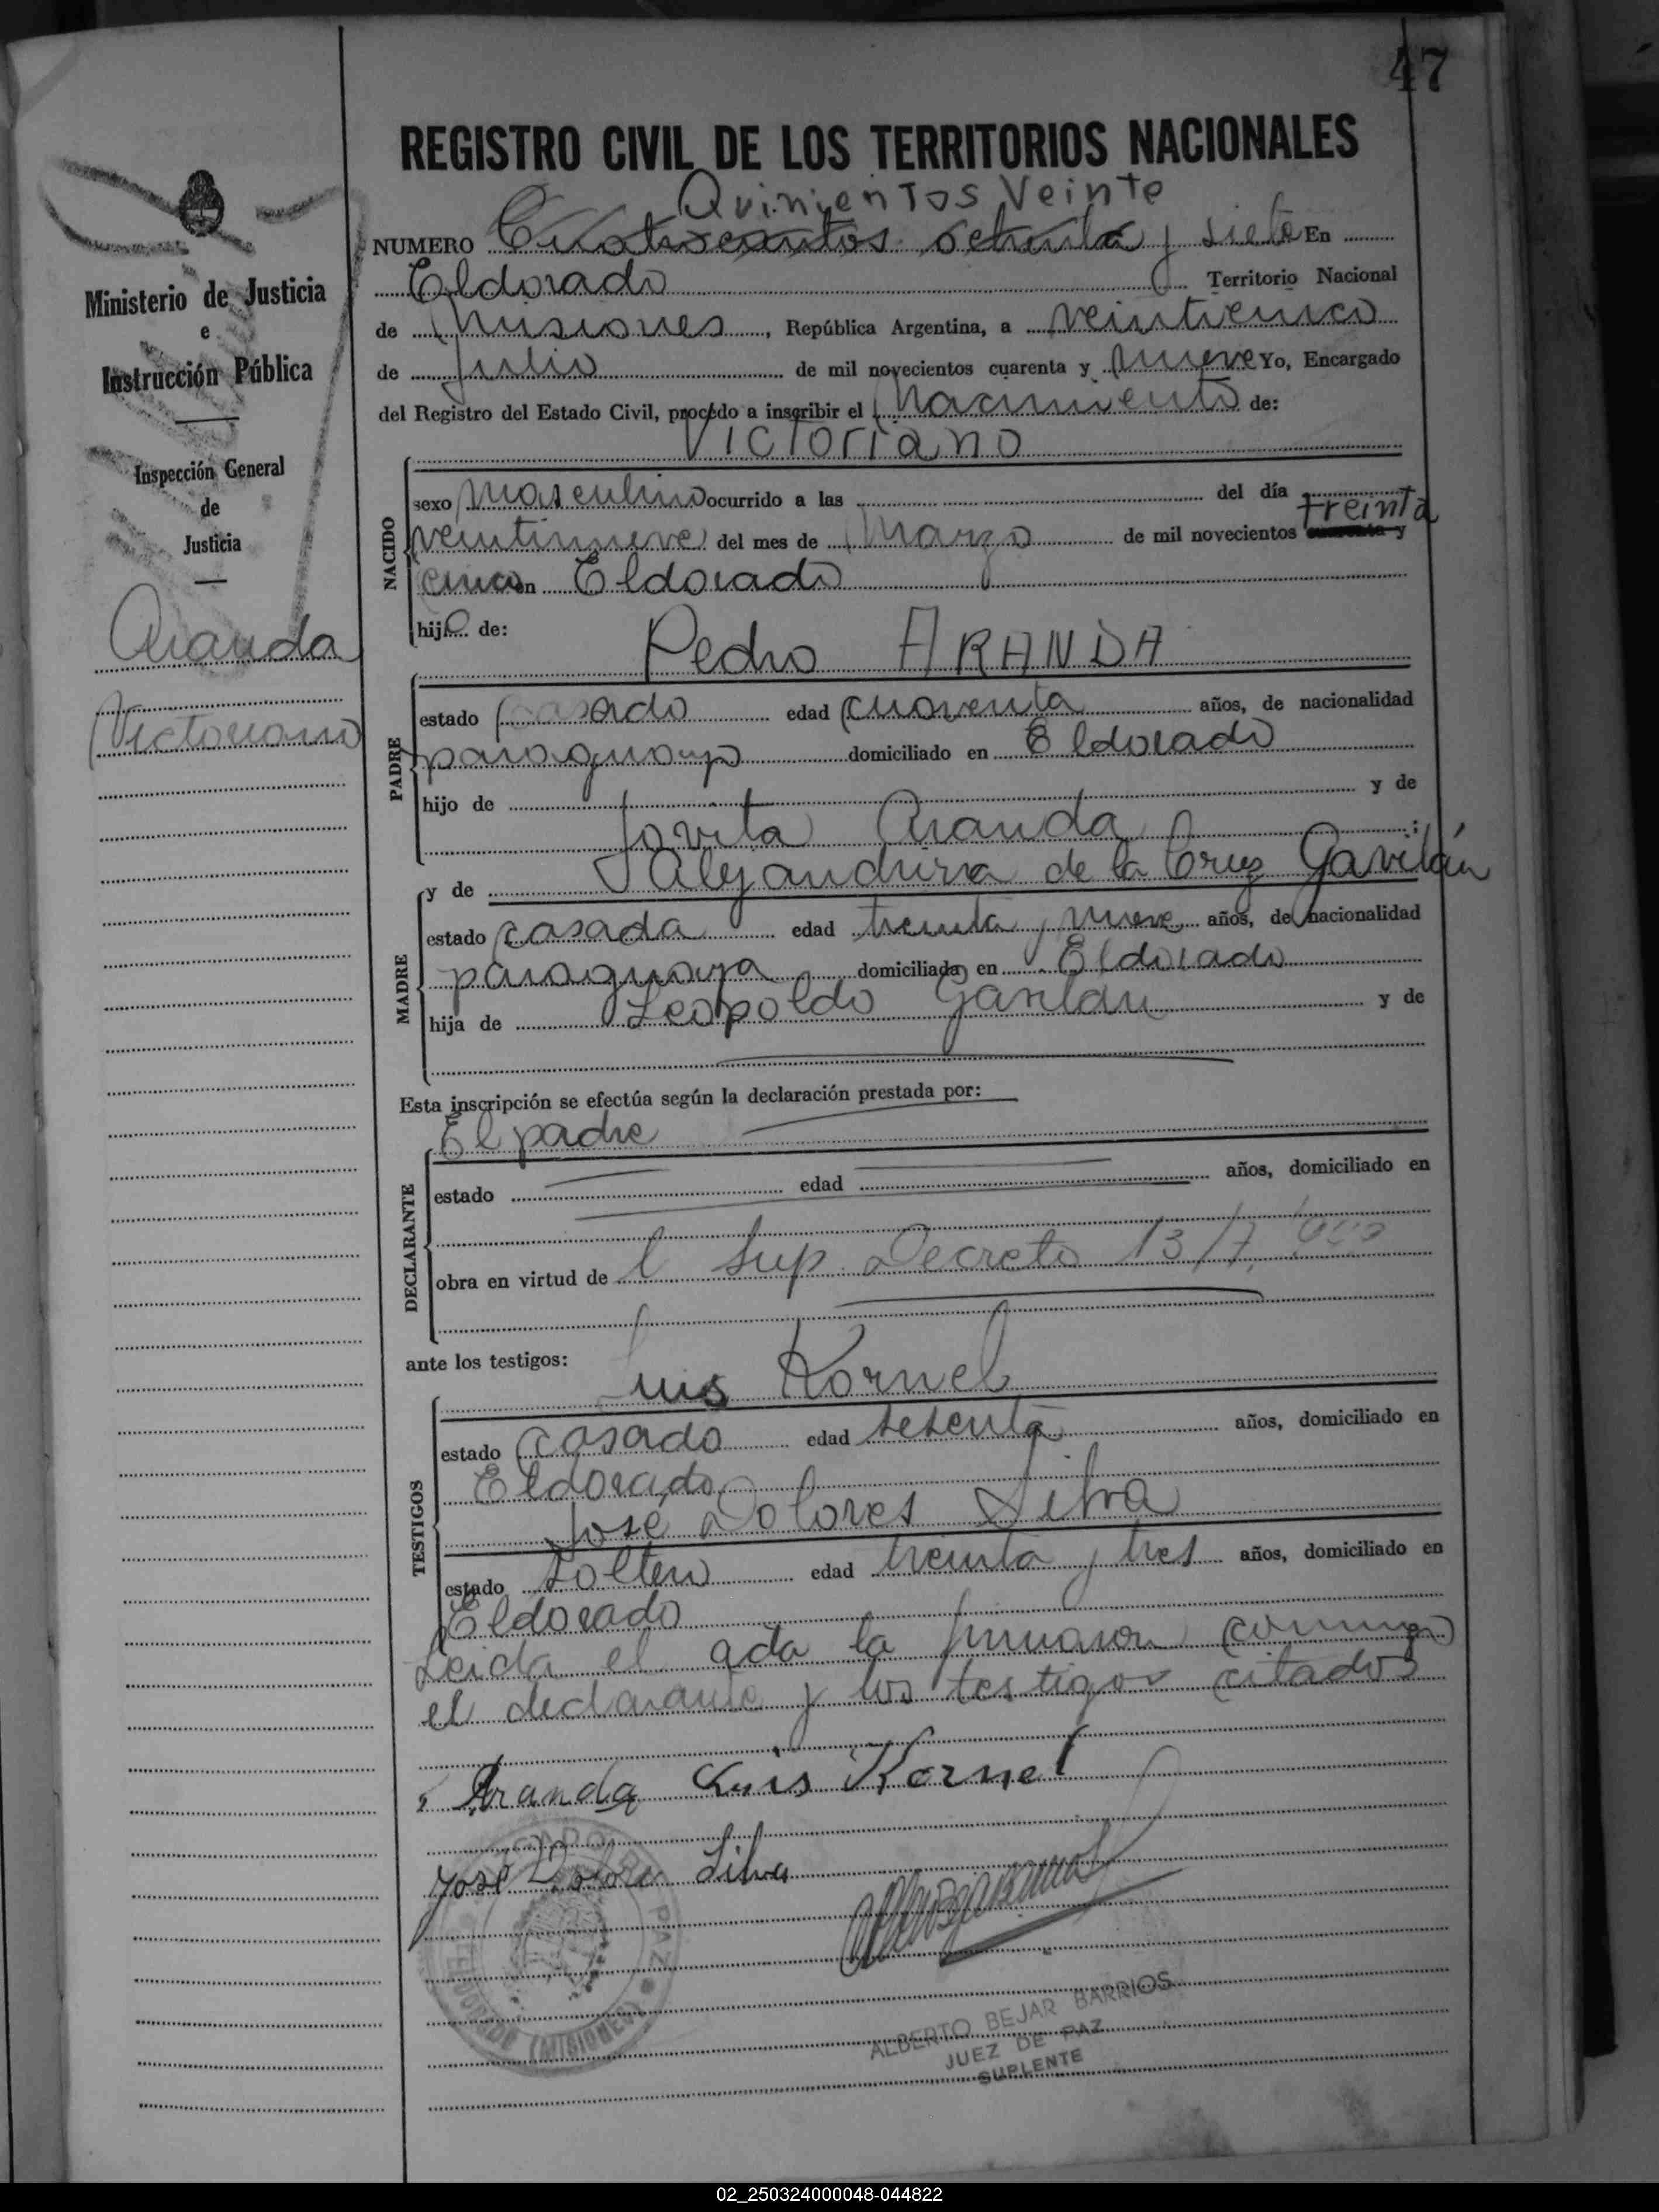 47
REGISTRO CIVIL DE LOS TERRITORIOS NACIONALES
Quinientos Veinte
NUMERO Cuatrocientos ochenta y siete En
Eldorado Territorio Nacional
de Misiones, República Argentina, a veinticinco
de Julio de mil novecientos cuarenta y nueve Yo, Encargado
del Registro del Estado Civil, procedo a inscribir el Nacimiento de:
Victoriano
NACIDO
sexo masculino ocurrido a las del día
treinta
veintinueve del mes de Marzo de mil novecientos cuarenta y
cinco en Eldorado
hijo de:
Pedro ARANDA
PADRE
estado casado edad cuarenta años, de nacionalidad
paraguayo domiciliado en Eldorado
hijo de y de
Jovita Aranda ;
MADRE
y de Alejandrina de la Cruz Gavilán
estado casada edad treinta y nueve años, de nacionalidad
paraguaya domiciliada en Eldorado
hija de Leopoldo Gavilán y de
Esta inscripción se efectúa según la declaración prestada por:
El padre
DECLARANTE
estado edad años, domiciliado en
obra en virtud de l Sup. Decreto 13/7
ante los testigos:
Luis Kornel
TESTIGOS
estado casado edad sesenta años, domiciliado en
Eldorado
José Dolores Silva
estado soltero edad treinta y tres años, domiciliado en
Eldorado
Leida el acta la firmaron conmigo
el declarante y los testigos citados
Aranda Luis Kornel
José Dolores Silva
PAZ
ELDORADO (MISIONES)
ALBERTO BEJAR BARRIOS
JUEZ DE PAZ
SUPLENTE
Ministerio de Justicia
e
Instrucción Pública
Inspección General
de
Justicia
Aranda
Victoriano
02_250324000048-044822